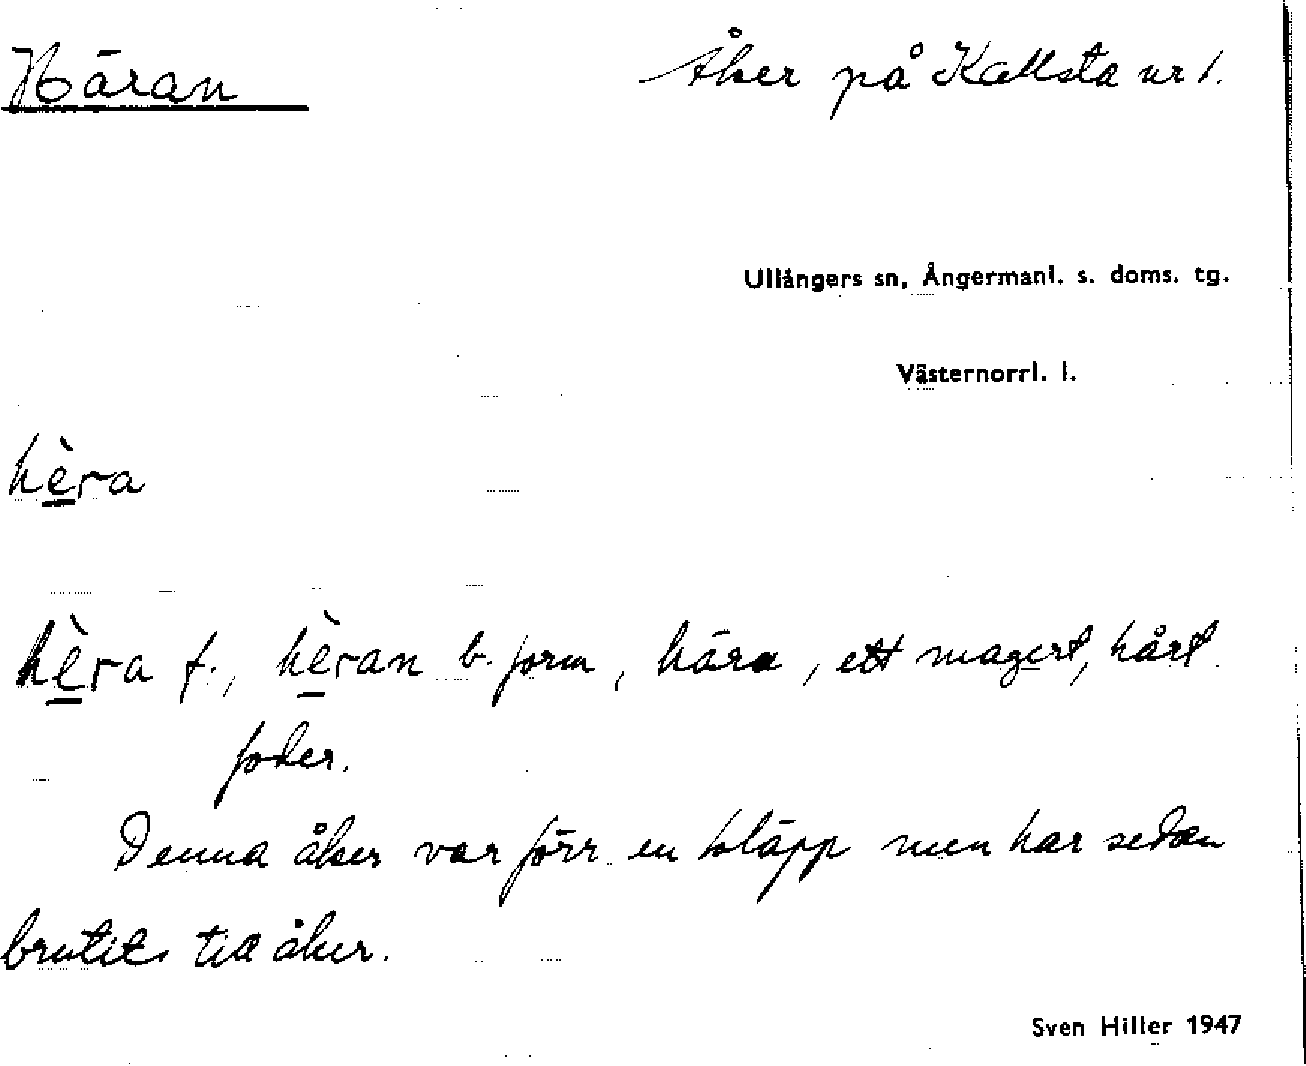 Häran
Åker på Kallsta nr 1.
Ullångers sn, Ångermanl. s. doms. tg.
Västernorrl. l.
hè̠ra
hè̠ra f., hè̠ran b. form, hära, ett magert, hårt
foder.
Denna åker var förr en kläpp men har sedan
brutits till åker.
Sven Hiller 1947